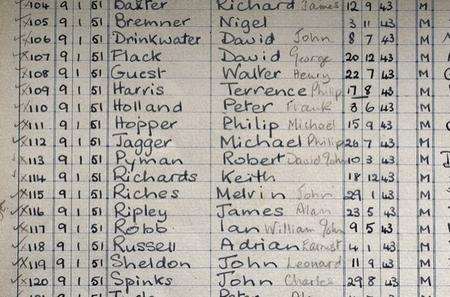 ✓x104 9 1 51 Baxter Richard James 12 9 43 M
✓x105 9 1 51 Bremner Nigel 3 11 43 M
✓x106 9 1 51 Drinkwater David John 8 7 43 M
✓x107 9 1 51 Flack David George 20 12 43 M
✓x108 9 1 51 Guest Walter Henry 22 7 43 M
✓x109 9 1 51 Harris Terrence Philip 17 8 43 M
✓x110 9 1 51 Holland Peter Frank 3 6 43 M
✓x111 9 1 51 Hopper Philip Michael 15 9 43 M
✓x112 9 1 51 Jagger Michael Philip 26 7 43 M
✓x113 9 1 51 Pyman Robert David John 10 3 43 M
✓x114 9 1 51 Richards Keith 18 12 43 M
✓x115 9 1 51 Riches Melvin John 29 1 43 M
✓x116 9 1 51 Ripley James Alan 23 5 43 M
✓x117 9 1 51 Robb Ian William John 9 5 43 M
✓x118 9 1 51 Russell Adrian Earnest 4 1 43 M
✓x119 9 1 51 Sheldon John Leonard 11 9 43 M
✓x120 9 1 51 Spinks John Charles 29 8 43 M